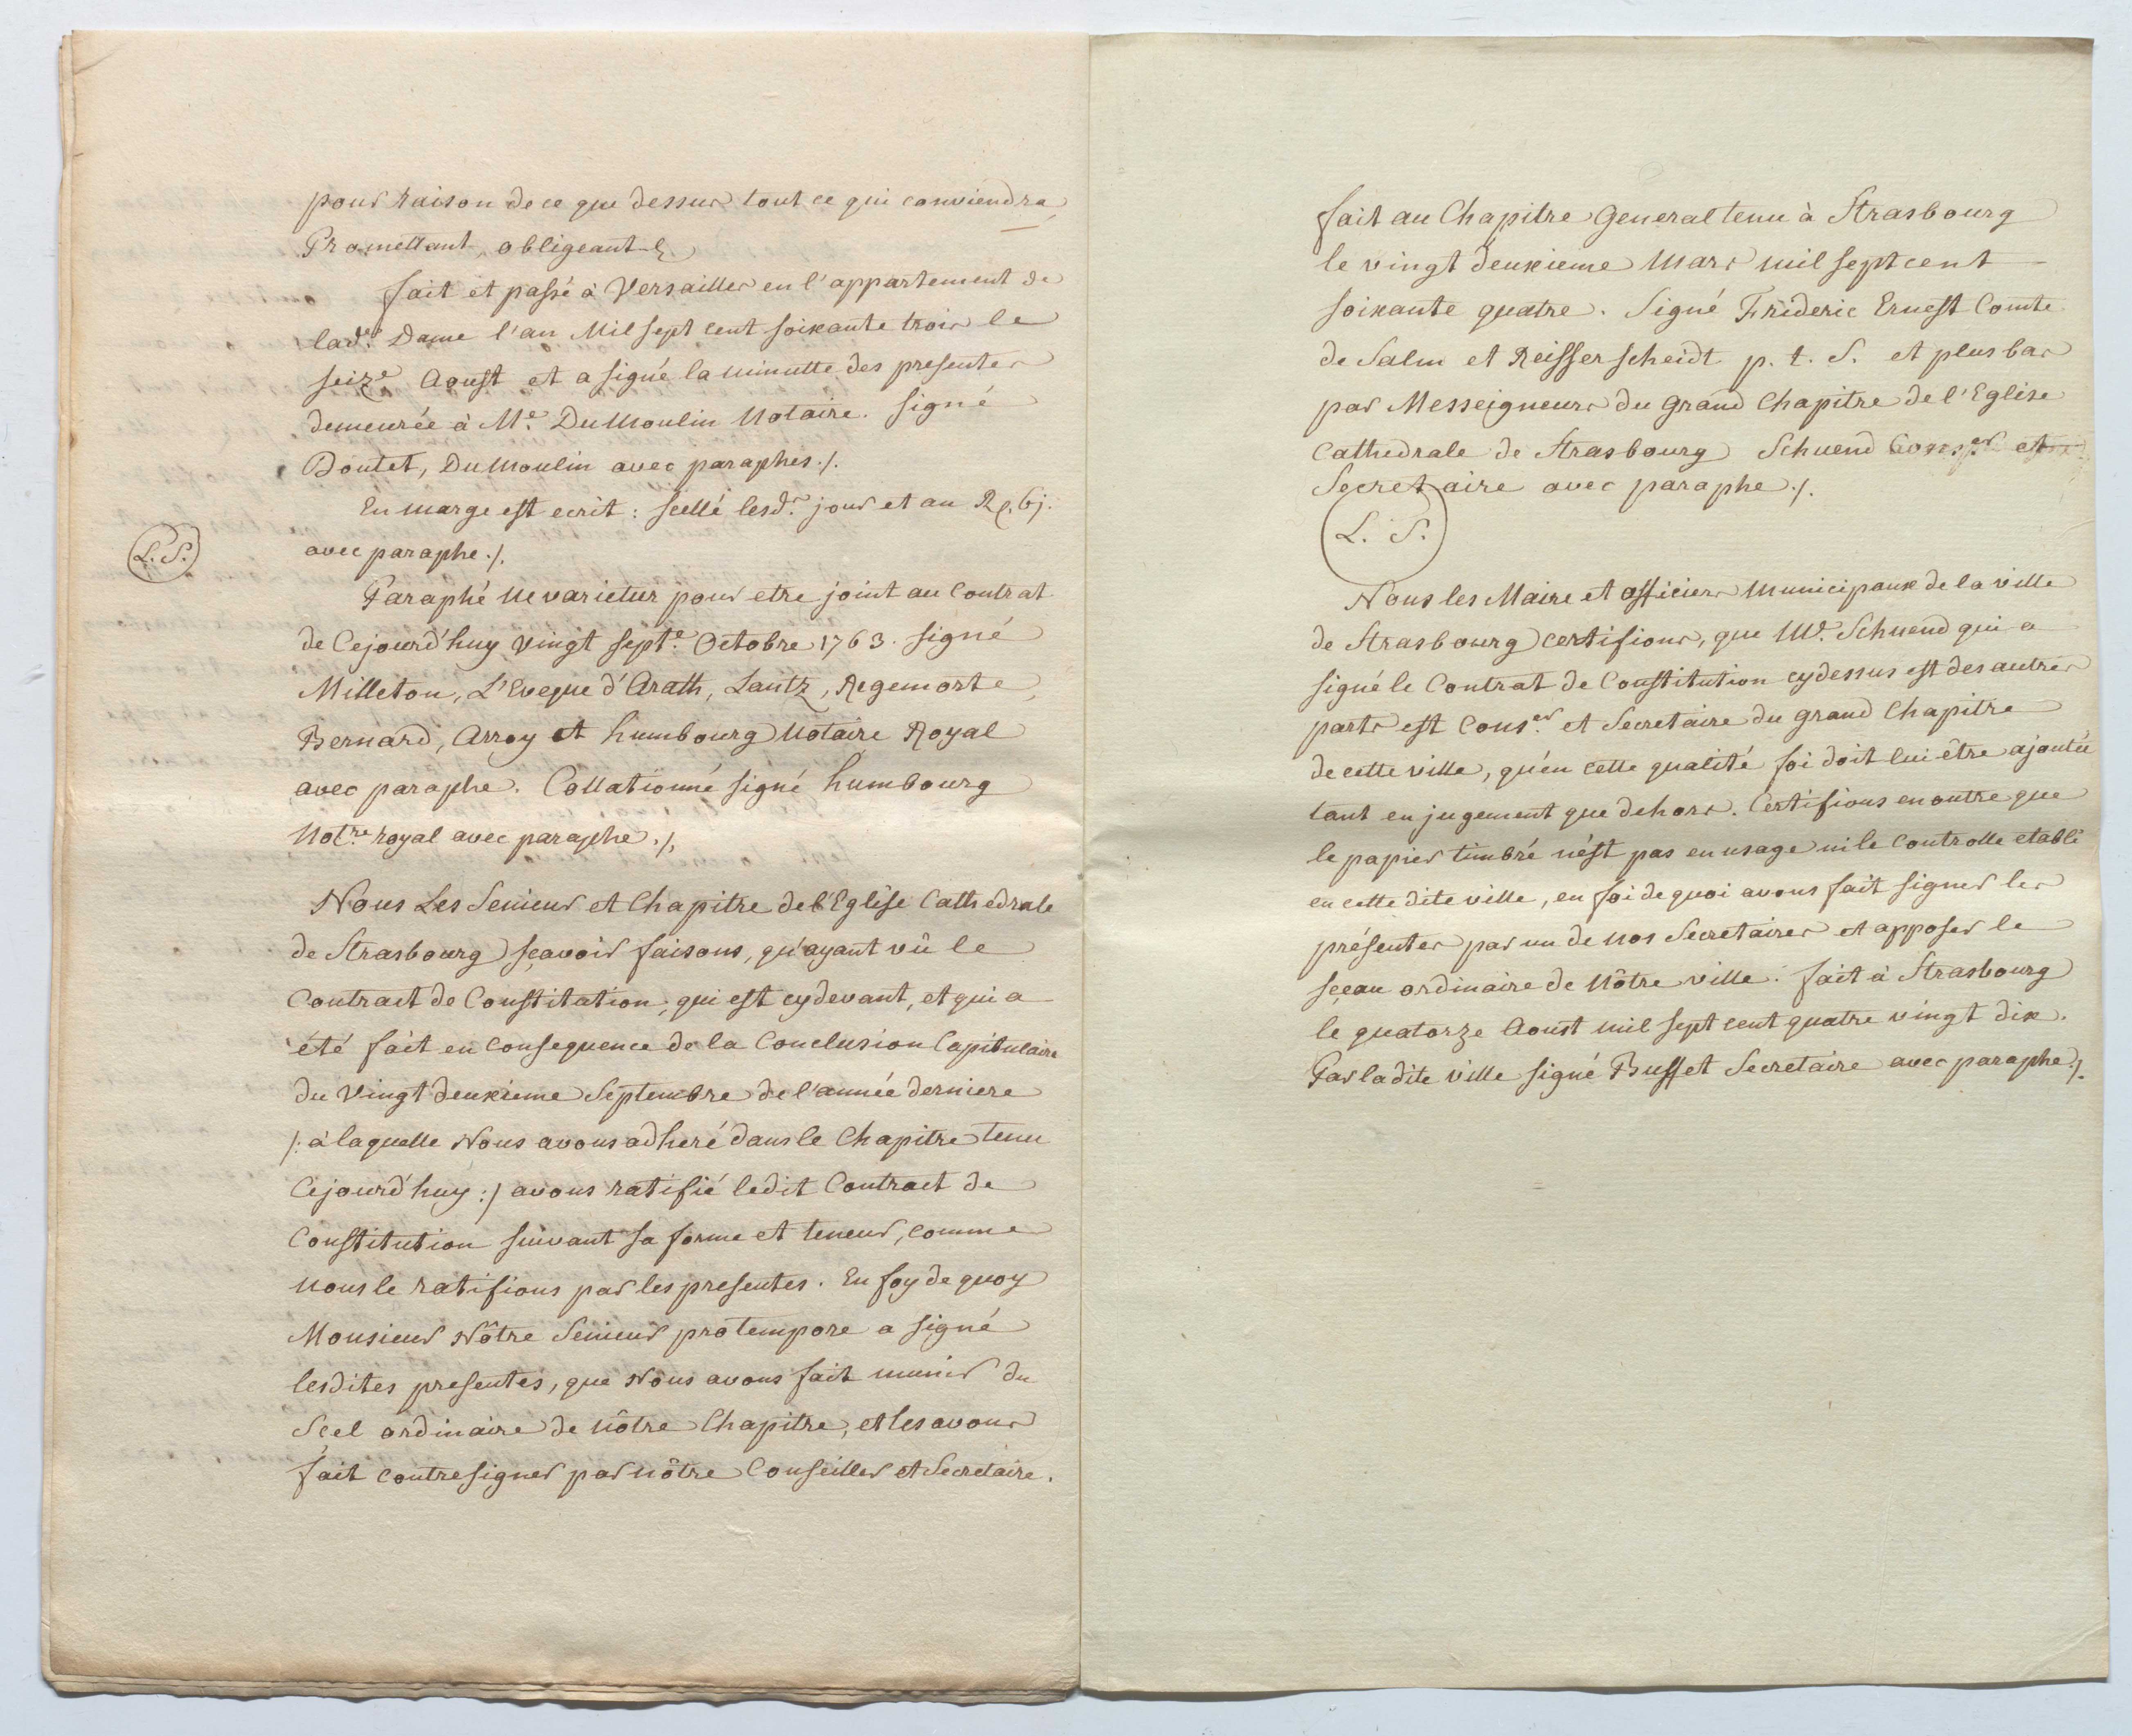 pour raison de ce que dessus tout ce qui conviendra
Promettant, obligeant &
fait et passé à Versailles en l'appartement de
lad.e Dame l'an Mil sept cent soixante trois le
seize Aoust et a signé la minutte des presentes
demeurée à M.e DuMoulin Notaire. signé
Boutet, DuMoulin avec paraphes ./.
En marge est ecrit : scellé lesd.s jour et an
avec paraphe ./.
L. S.
Paraphé Ne varietur pour etre joint au Contrat
de Cejourd'huy Vingt sept.e Octobre 1763. signé
Milleton, L'Eveque d'Arath, Lantz, Regemorte,
Bernard, Arroy et humbourg Notaire Royal
avec paraphe. Collationné signé humbourg
Not.re royal avec paraphe ./.
Nous Les Senieur et Chapitre de l'Eglise Cathedrale
de Strasbourg sçavoir faisons, qu'ayant vû le
Contract de Constitution, qui est cydevant, et qui a
été fait en Consequence de la Conclusion Capitulaire
du Vingt deuxieme Septembre de l'année derniere
/: à laquelle Nous avons adheré dans le Chapitre tenu
Cejourd'huy :/ avons ratifié ledit Contract de
Constitution suivant sa forme et teneur, comme
nous le ratifions par les presentes. En foy de quoy
Monsieur Nôtre Senieur protempore a signé
lesdites presentes, que Nous avons fait munir du
Scel ordinaire de nôtre Chapitre, et les avons
fait contresigner par nôtre Conseiller et Secretaire.
fait au Chapitre General tenu à Strasbourg
le vingt deuxieme Mars mil sept cent
soixante quatre. Signé Fréderic Ernest Comte
de Salm et Reifferscheidt p. t. S. et plus bas
par Messeigneurs du grand Chapitre de l'Eglise
Cathedrale de Strasbourg Schuend Cons.er et
Secretaire avec paraphe ./.
L. S.
Nous les Maire et officiers Municipaux de la ville
de Strasbourg certifions, que M.r Schuend qui a
signé le Contrat de Constitution cydessus est des autres
parts est Cons.er et Secretaire du grand Chapitre
de cette ville, qu'en cette qualité foi doit lui être ajoutée
tant en jugement que dehors. Certifions en outre que
le papier timbré n'est pas en usage ni le Controlle etabli
en cette dite ville, en foi de quoi avons fait signer les
présentes par un de nos Secretaires et apposer le
sceau ordinaire de Nôtre ville. fait à Strasbourg
le quatorze Aoust mil sept cent quatre vingt dix.
Par ladite ville signé Buffet Secretaire avec paraphe ./.